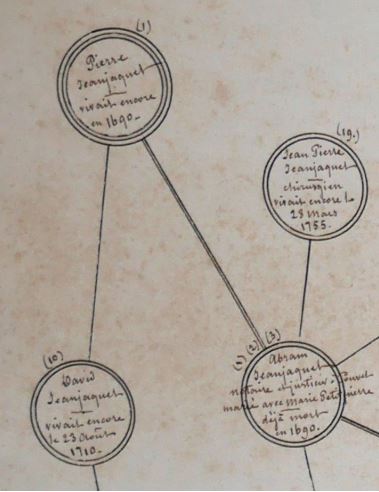 (1)
Pierre
Jeanjaquet
vivait encore
en 1690.
(19.)
Jean Pierre
Jeanjaquet
chirurgien
vivait encore le
28 Mars
1755.
(10)
David
Jeanjaquet
vivait encore
le 23 Août
1710.
(1) (2) (3)
Abram
Jeanjaquet
notaire et justicier à Couvet
marié avec Marie Petitpierre
déjà mort
en 1690.